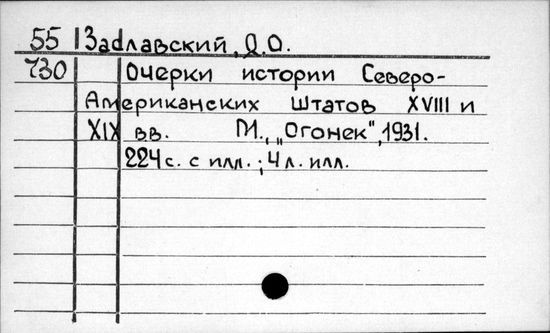 55 Заславский, Д.О.
730 Очерки истории Северо-
Американских Штатов XVIII и
XIX вв. М., „Огонек", 1931.
224 с. с илл.; 4 л. илл.